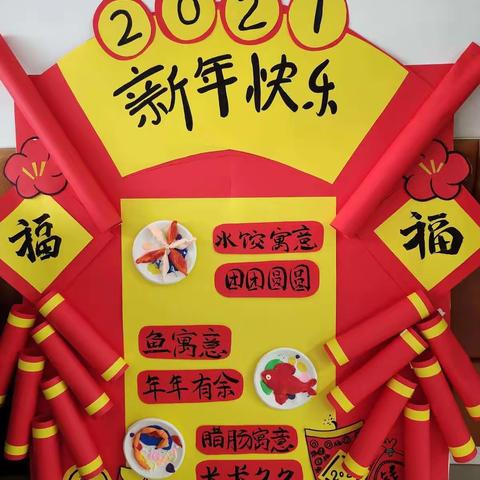 2021
新年快乐
福
福
水饺寓意
团团圆圆
鱼寓意
年年有余
腊肠寓意
长长久久